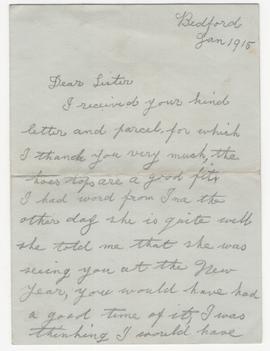 Bedford
Jan 1915
Dear Sister
I received your kind
letter and parcel, for which
I thank you very much, the
hose tops are a good fit.
I had word from Ina the
other day she is quite well
she told me that she was
seeing you at the New
Year, you would have had
a good time of it, I was
thinking I would have